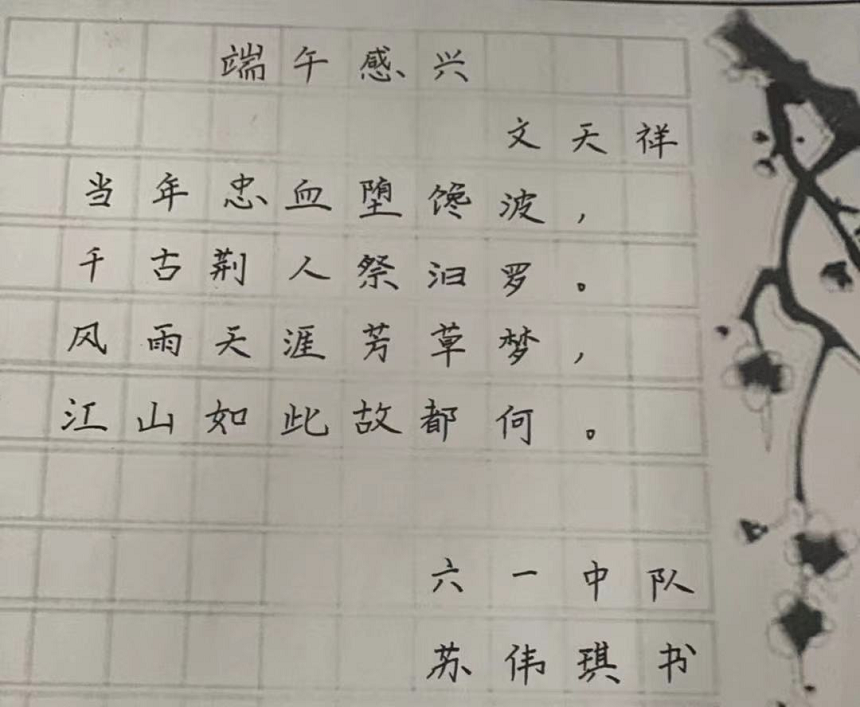 端午感兴
文天祥
当年忠血堕馋波，
千古荆人祭汨罗。
风雨天涯芳草梦，
江山如此故都何。
六一中队
苏伟琪书